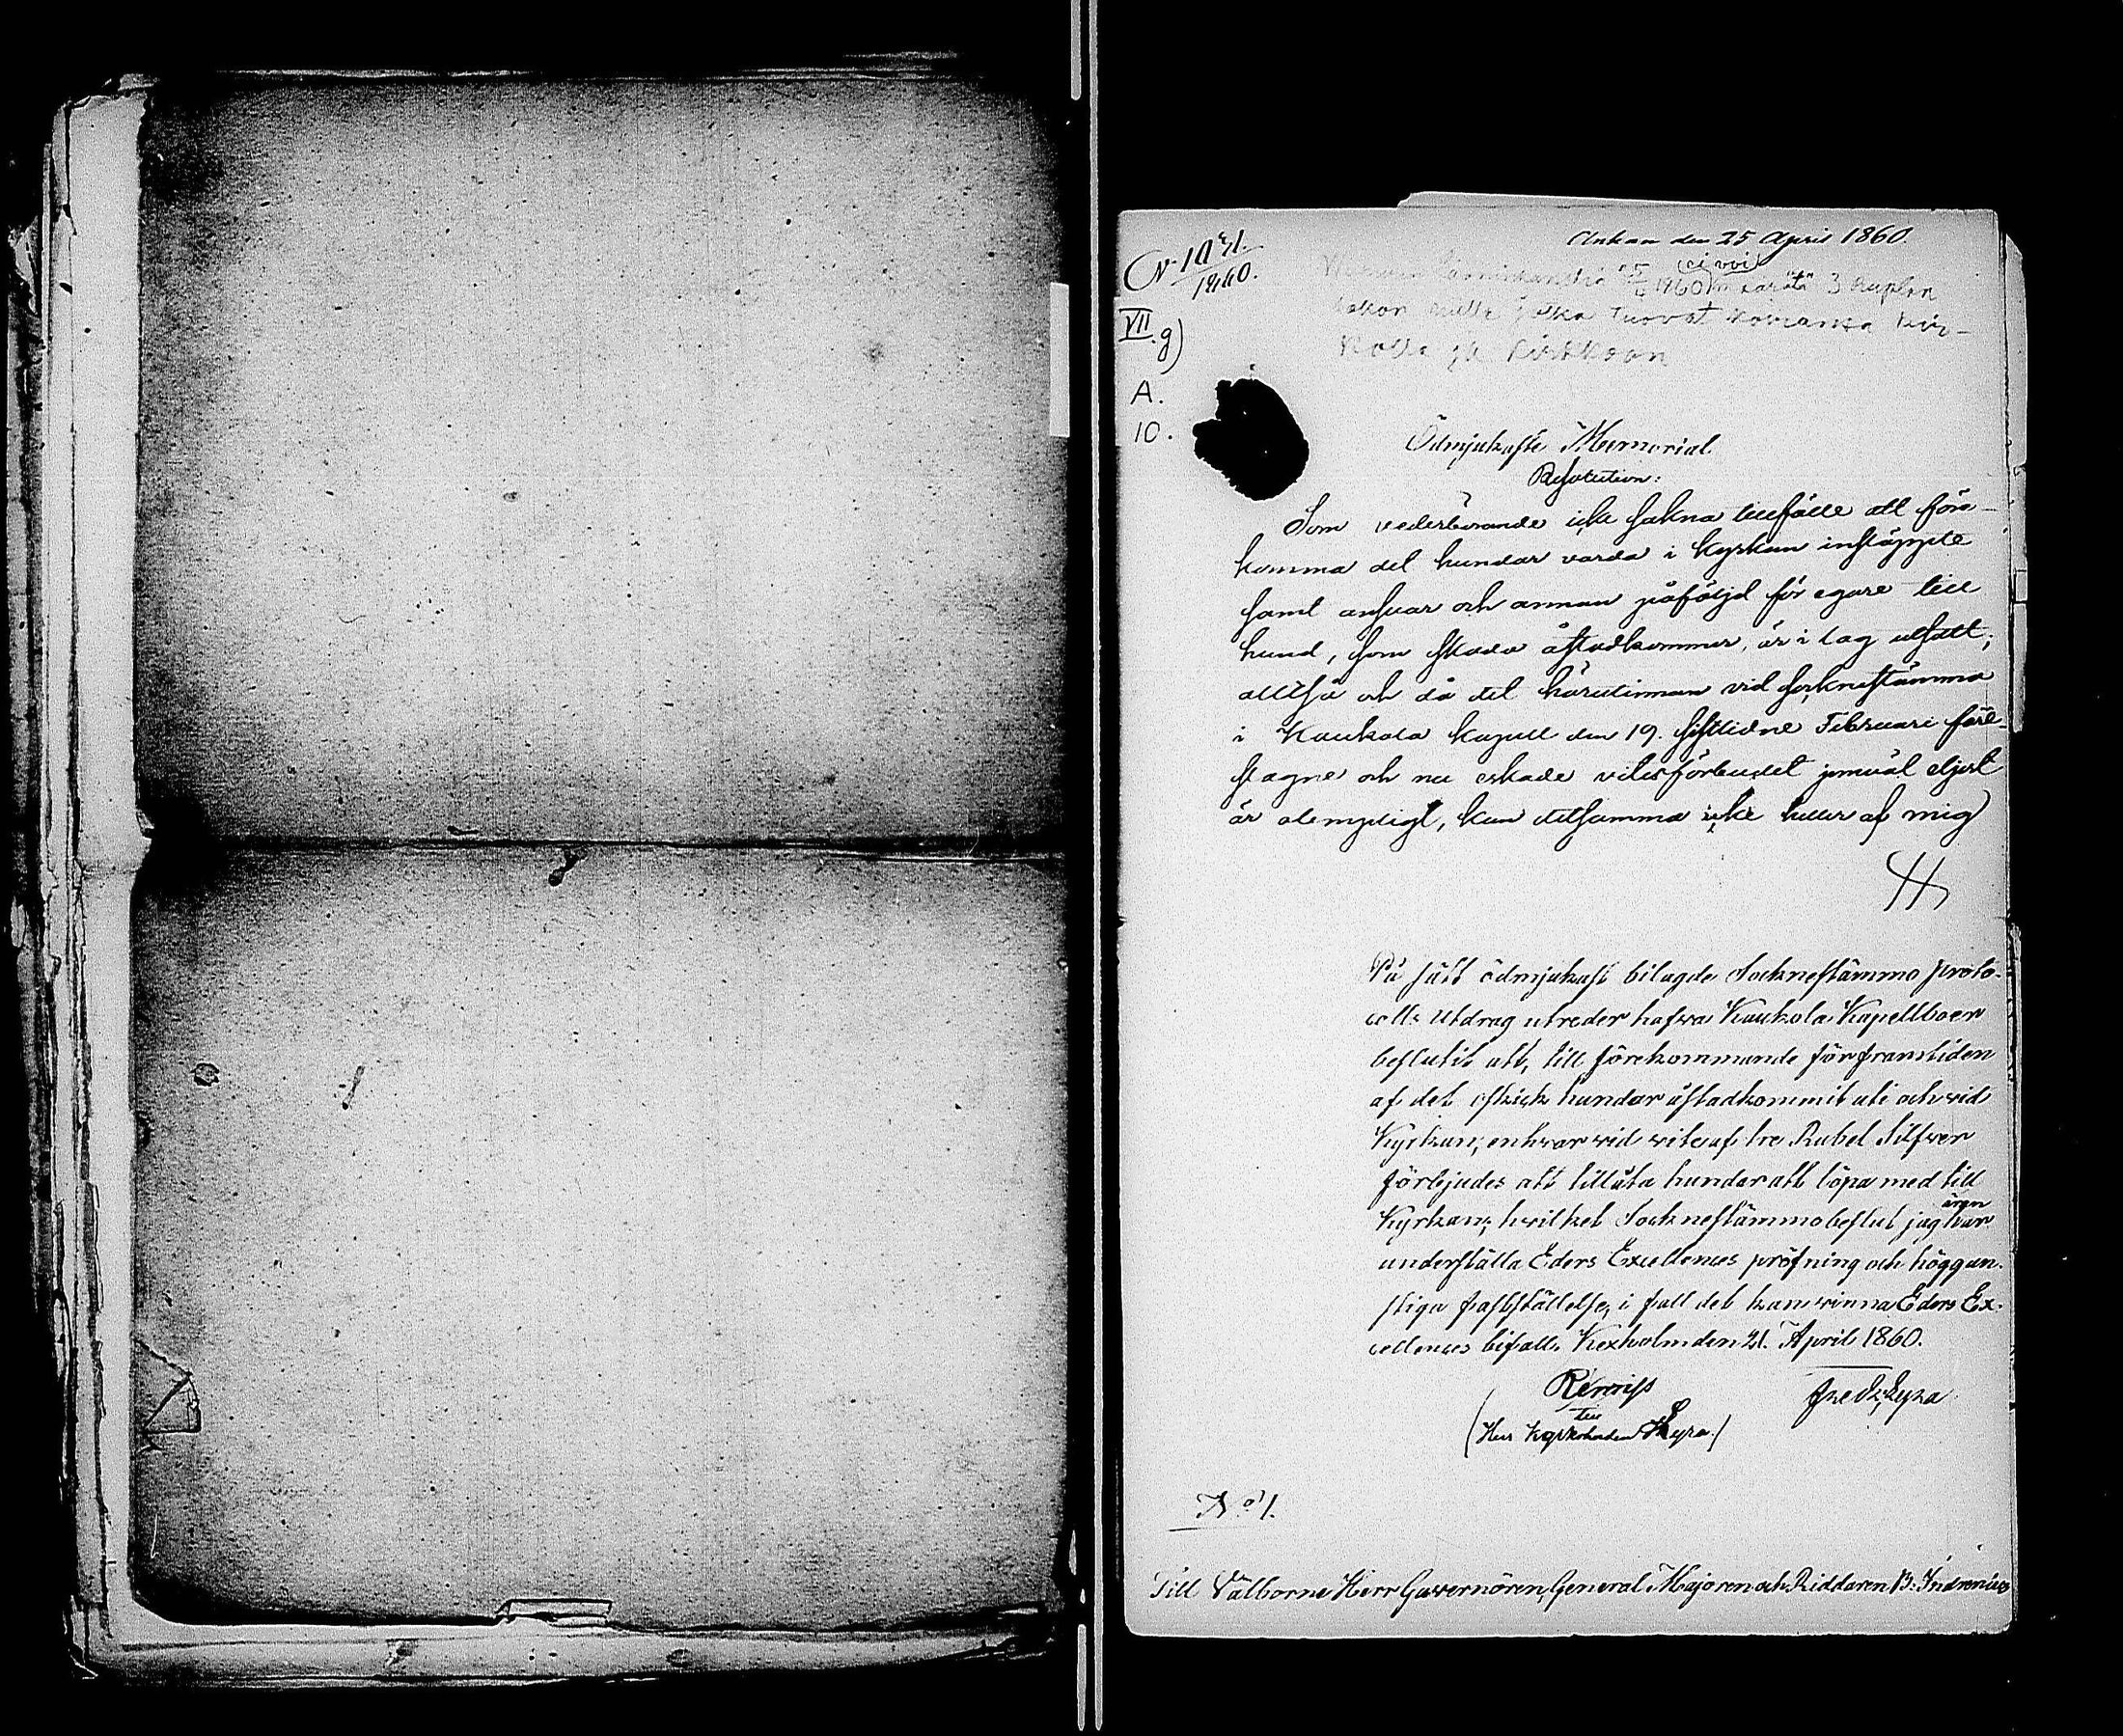 Ankom den 25 April 1860.
N 1041.
1860.
ei voi
1860 määrätä 3 ruplan
sakon niille jotka tuovat koiransa
kirkkoon
VII.g)
A.
10.
Ödmjukaste Memorial
Resolution:
Som vederbörande icke sakna tillfälle att före-
komma det hundar varda i Kyrkan insläppte
samt ansvar och annan påföljd för egare till
hund, som skada åstadkommer, är i lag utsatt;
alltså och då det härutinnan vid sockenstämma
i Kaukola kapell den 19. sistlidne Februari före-
slagne och nu eskade vitesförbudet jemväl eljest
är olempligt, kan detsamma icke heller af mig
På sätt ödmjukast bilagde Sockenstämmo proto-
colls Utdrag utreder hafva Kaukola Kapellboer
beslutit att, till förekommande för framtiden
af det oskick hundar åstadkommit uti och vid
Kyrkan, enhvar vid vite af tre Rubel Silfver
förbjudes att tillåta hundar att löpa med till
Kyrkan; hvilket Sockenstämmobeslut jag har
äran
underställa Eders Excellences pröfning och höggun-
stiga fastställelse, i fall det kan vinna Eders Ex-
cellences bifall. Kexholm den 21. April 1860.
Remiss
till
(Herr Kyrkoherden Skyra.)
Fredr. Skyra
No 1.
Till Välborne Herr Guvernören, General Majoren och Riddaren B. Indrenius